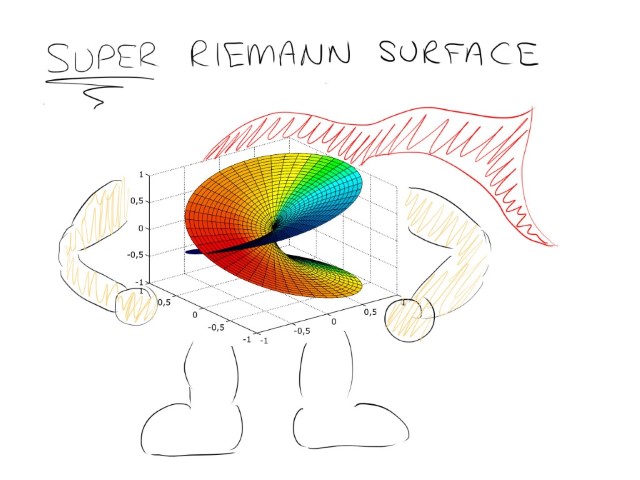 SUPER RIEMANN SURFACE
1
0,5
0
-0,5
-1
1
0,5
0
-0,5
-1
-1
-0,5
0
0,5
1